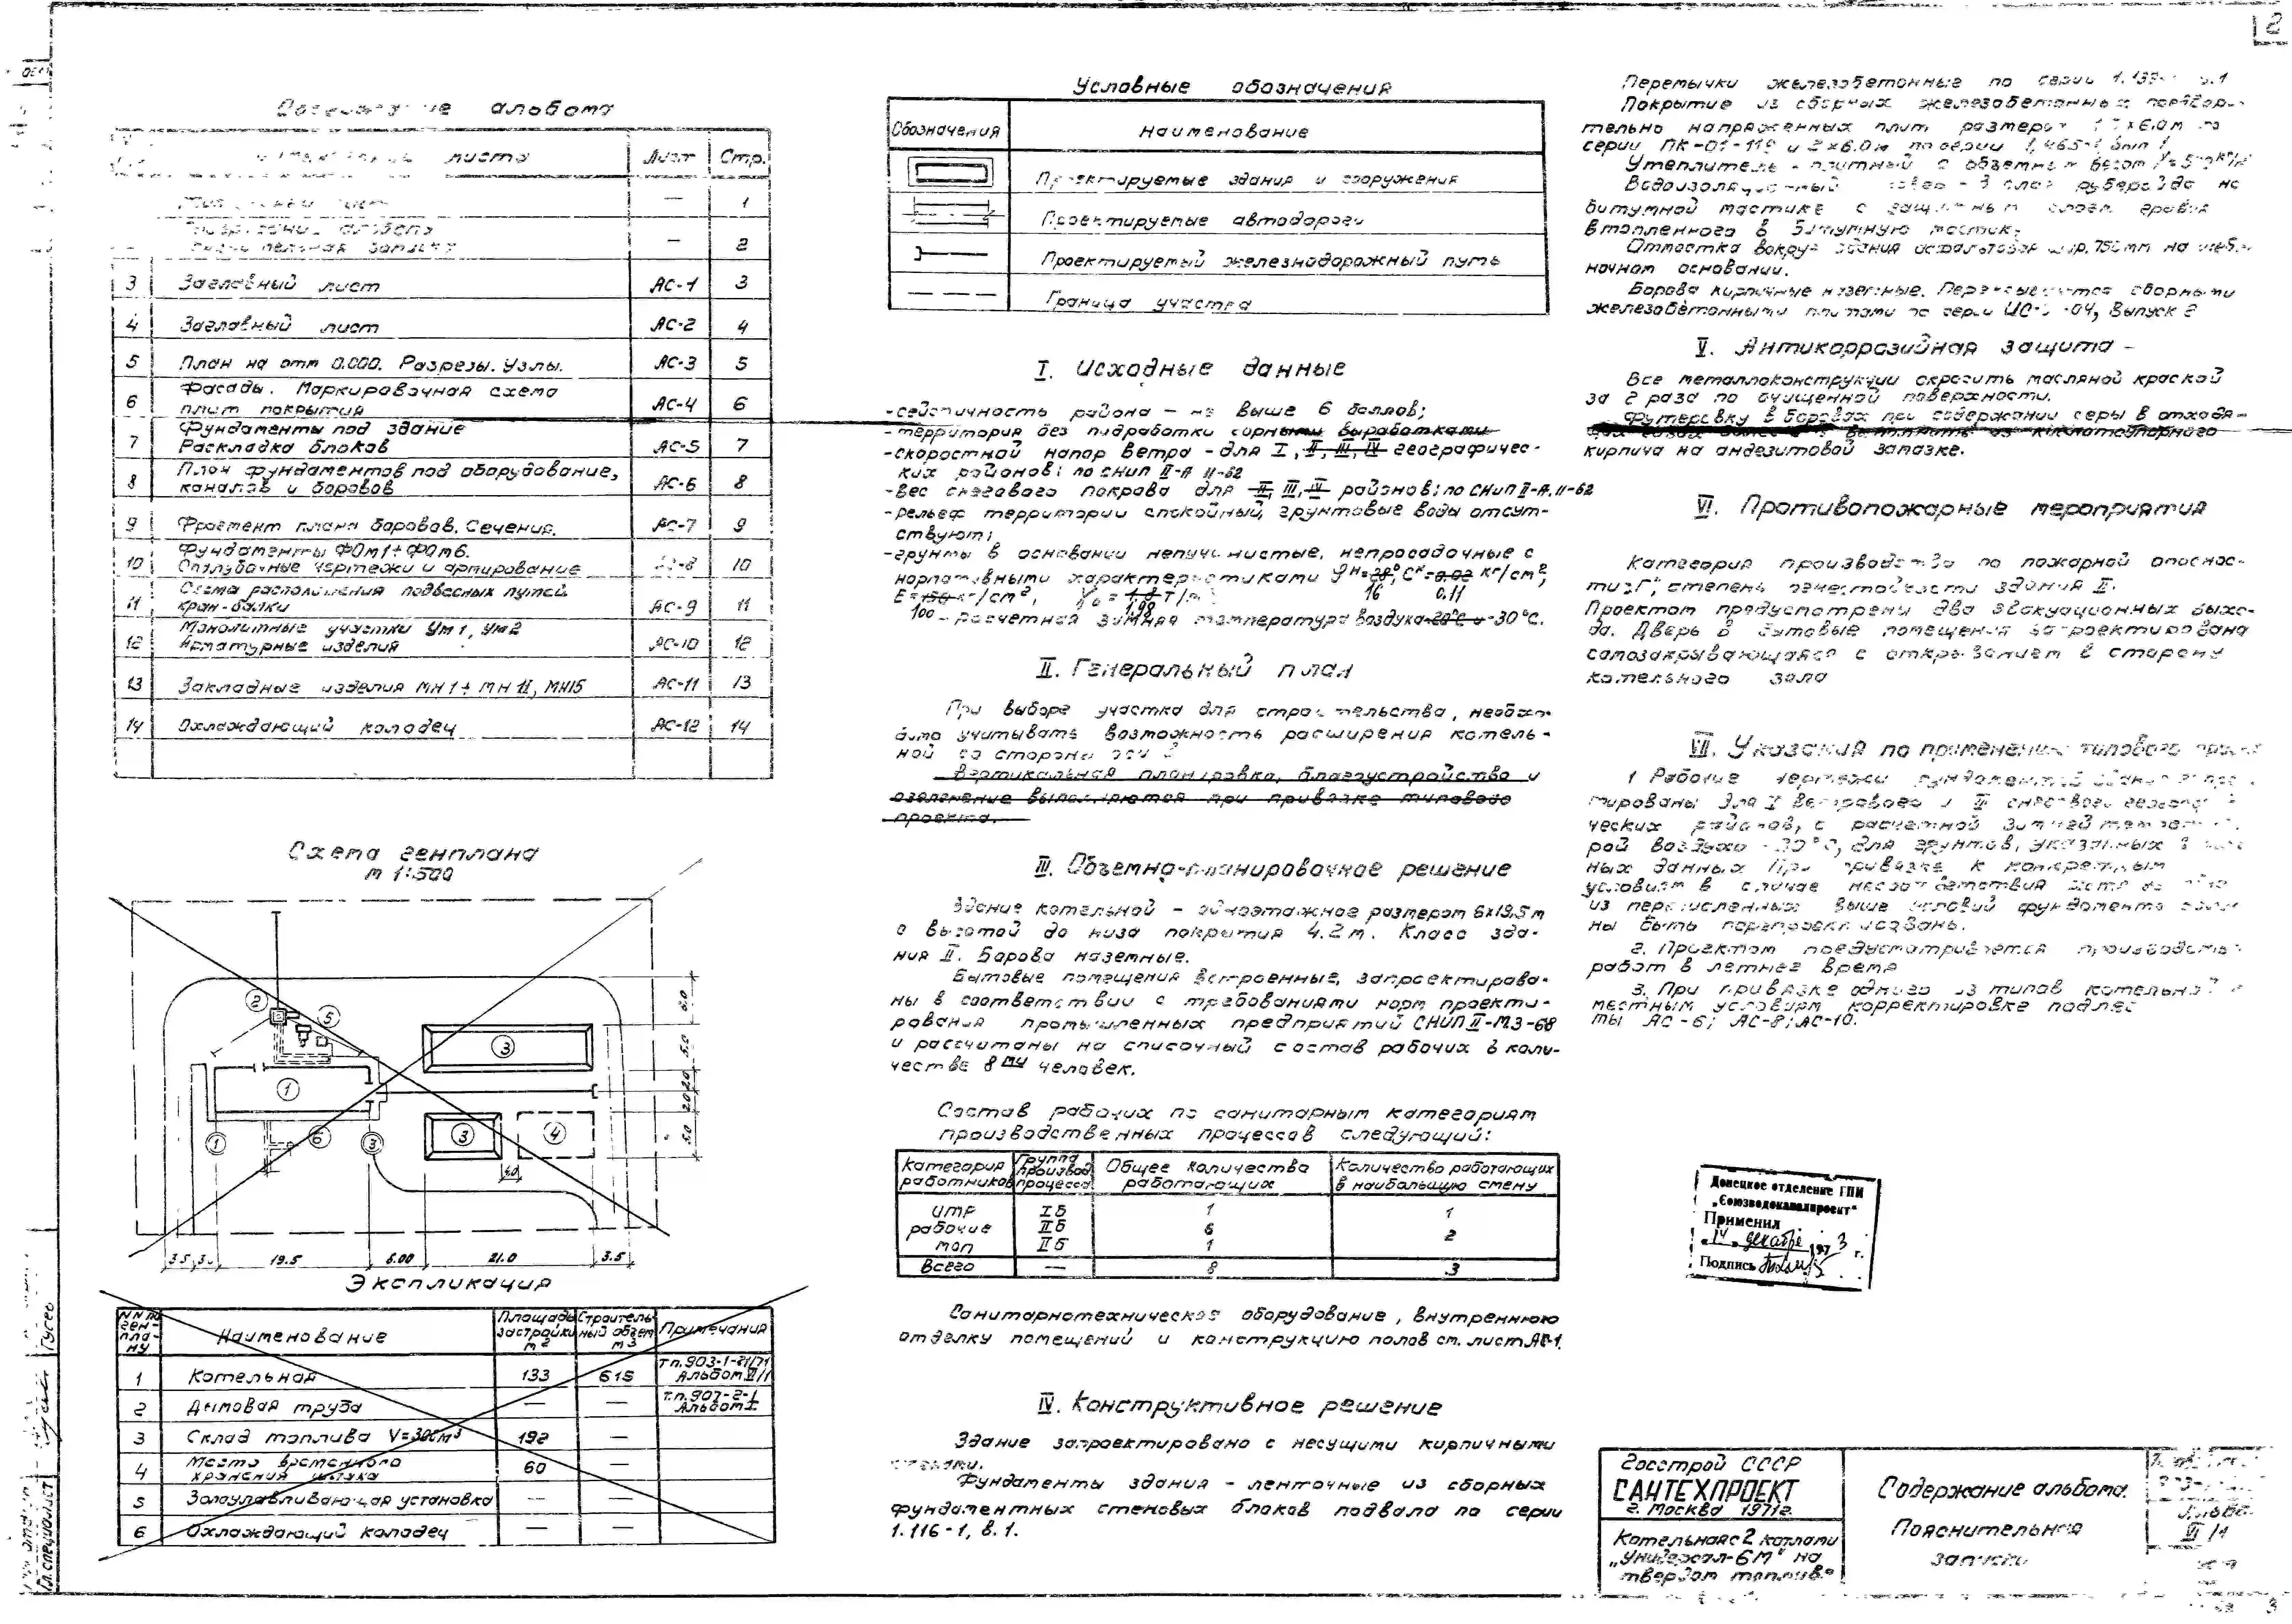 2
альбома
листа Лист Стр.
— 1
— 2
3 Заглавный лист АС-1 3
4 Заглавный лист АС-2 4
5 План на отм 0.000. Разрезы. Узлы. АС-3 5
6 Фасады. Маркировочная схема плит покрытия АС-4 6
7 Фундаменты под здание Раскладка блоков АС-5 7
8 План фундаментов под оборудование, каналов и боровов АС-6 8
9 Фрагмент плана боровов. Сечения. АС-7 9
10 Фундаменты ФОм1÷ФОм6. Опалубочные чертежи и армирование 10
11 Схема расположения подвесных путей кран-балки АС-9 11
12 Монолитные участки Ум1, Ум2 Арматурные изделия АС-10 12
13 Закладные изделия МН1÷МН11, МН15 АС-11 13
14 Охлаждающий колодец АС-12 14
Схема генплана
м 1:500
2
5
3
1
1 6 3 3 4
6.0
5.0
2.0 2.0
5.0
4.0
3.5 19.5 6.00 21.0 3.5
Экспликация
NN по генплану Наименование Площадь застройки м2 Строительный объем м3 Примечания
1 Котельная 133 615 т.п.903-1-21/71
2 Дымовая труба — — т.п.907-2-1 Альбом I
3 Склад топлива 192 —
4 Место временного хранения шлака 60 —
5 Золоулавливающая установка — —
6 Охлаждающий колодец — —
Условные обозначения
Обозначения Наименование
Проектируемые здания и сооружения
Проектируемые автодороги
Проектируемый железнодорожный путь
Граница участка
I. Исходные данные
-сейсмичность района — не выше 6 баллов;
-территория без подработки горными выработками
-скоростной напор ветра - для I, II, III, IV географичес-
ких районов; по СНиП II-А 11-62
-вес снегового покрова для II, III, IV районов; по СНиП II-А.11-62
-рельеф территории спокойный, грунтовые воды отсут-
ствуют;
-грунты в основании непучинистые, непросадочные с
нормативными характеристиками φн=28°, Сн=0.02 кг/см²,
16 0.11
E=150 кг/см², γо = 1.8 т/м³
100 1.98
- расчетная зимняя температура воздуха-20°С и -30°С.
II. Генеральный план
При выборе участка для строительства, необхо-
димо учитывать возможность расширения котель-
ной со стороны оси
Вертикальная планировка, благоустройство и
озеленение выполняются при привязке типового
проекта.
III. Объемно-планировочное решение
Здание котельной - одноэтажное размером 6х19,5м
с высотой до низа покрытия 4.2м. Класс зда-
ния II. Борова наземные.
Бытовые помещения встроенные, запроектирова-
ны в соответствии с требованиями норм проекти-
рования промышленных предприятий СНиП II-М.3-68
и рассчитаны на списочный состав рабочих в коли-
честве 8ми человек.
Состав рабочих по санитарным категориям
производственных процессов следующий:
Категория работников Группа производ. процесса Общее количество работающих Количество работающих в наибольшую смену
ИТР Iб 1 1
рабочие IIб 6 2
МОП IIб 1
Всего — 8 3
Санитарнотехническое оборудование, внутреннюю
отделку помещений и конструкцию полов см. лист АС-1.
IV. Конструктивное решение
Здание запроектировано с несущими кирпичными
стенами.
Фундаменты здания - ленточные из сборных
фундаментных стеновых блоков подвала по серии
1.116-1, в.1.
Перемычки железобетонные по серии
Покрытие из сборных железобетонных предвари-
тельно напряженных плит размером х6.0м по
серии ПК-01-119 и 2х6.0м по серии
Утеплитель - плитный с объемным весом
Водоизоляционный ковер - 3 слоя рубероида на
битумной мастике с защитным слоем гравия
втопленного в битумную мастику
Отмостка вокруг здания асфальтовая шир.750мм на щебе-
ночном основании.
Борова кирпичные наземные. Перекрываются сборными
железобетонными плитами по серии Выпуск 2
V. Антикоррозийная защита -
Все металлоконструкции окрасить масляной краской
за 2 раза по очищенной поверхности.
Футеровку в боровах при содержании серы в отходя-
щих газах более выполнить из кислотоупорного
кирпича на андезитовой замазке.
VI. Противопожарные мероприятия
Категория производства по пожарной опаснос-
ти „Г", степень огнестойкости здания II.
Проектом предусмотрены два эвакуационных выхо-
да. Дверь в бытовые помещения запроектирована
самозакрывающаяся с открыванием в сторону
котельного зала
VII. Указания по применению типового
1 Рабочие чертежи фундаментов здания
тированы для I ветрового и III снегового
ческих районов, с расчетной зимней
рой воздуха -30°С, для грунтов, указанных в
ных данных При привязке к конкретным
условиям в случае несоответствия
из перечисленных выше условий фундаменты
ны быть перепроектированы.
2. Проектом предусматривается производство
работ в летнее время
3. При привязке одного из типов котельной к
местным условиям корректировке подлежат
АС-6; АС-8; АС-10.
Донецкое отделение ГПИ
„Союзводоканалпроект"
Применил
„14" декабря 1973 г.
Подпись
Госстрой СССР
САНТЕХПРОЕКТ
г. Москва 1971г.
Котельная с 2 котлами
„Универсал-6М" на
твердом топливе
Содержание альбома.
Пояснительная
записка
Гусев
Гл.специалист
3